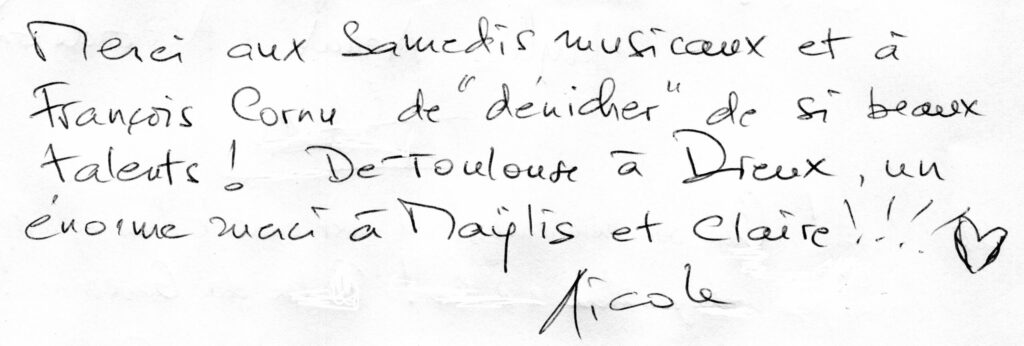 Merci aux Samedis musicaux et à
François Cornu de "dénicher" de si beaux
talents ! De Toulouse à Dreux, un
énorme merci à Maÿlis et Claire !!!
Nicole